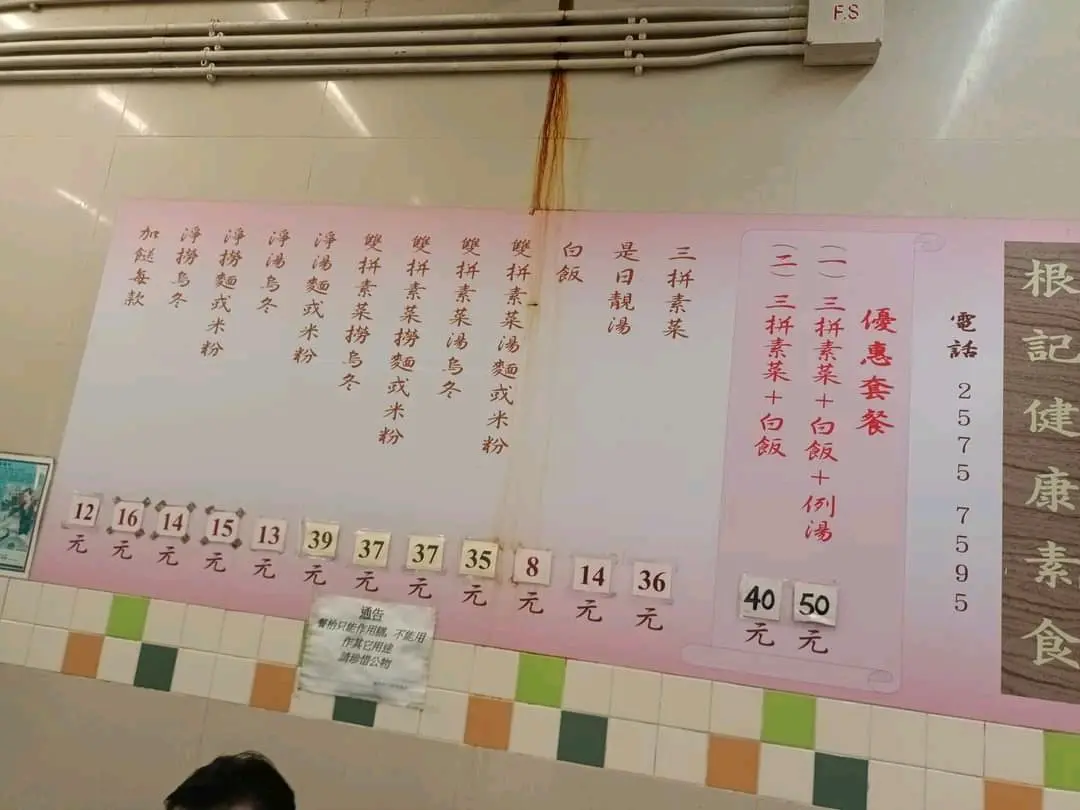 F.S
根記健康素食
電話 2575 7595
優惠套餐
(一) 三拼素菜＋白飯＋例湯 50元
(二) 三拼素菜＋白飯 40元
三拼素菜 36元
是日靚湯 14元
白飯 8元
雙拼素菜湯麵或米粉 35元
雙拼素菜湯烏冬 37元
雙拼素菜撈麵或米粉 37元
雙拼素菜撈烏冬 39元
淨湯麵或米粉 13元
淨湯烏冬 15元
淨撈麵或米粉 14元
淨撈烏冬 16元
加餸每款 12元
通告
餐枱只能作用膳，不能用
作其它用途
請珍惜公物